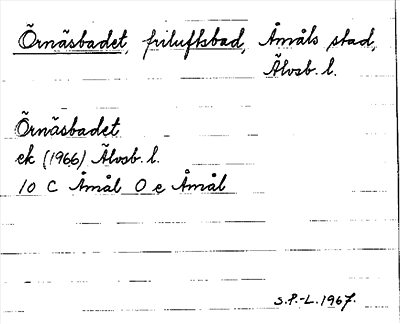 Örnäsbadet, friluftsbad, Åmåls stad,
Älvsb. l.
Örnäsbadet
ek (1966) Älvsb. l.
10 C Åmål 0 e Åmål
S.P.-L. 1967.